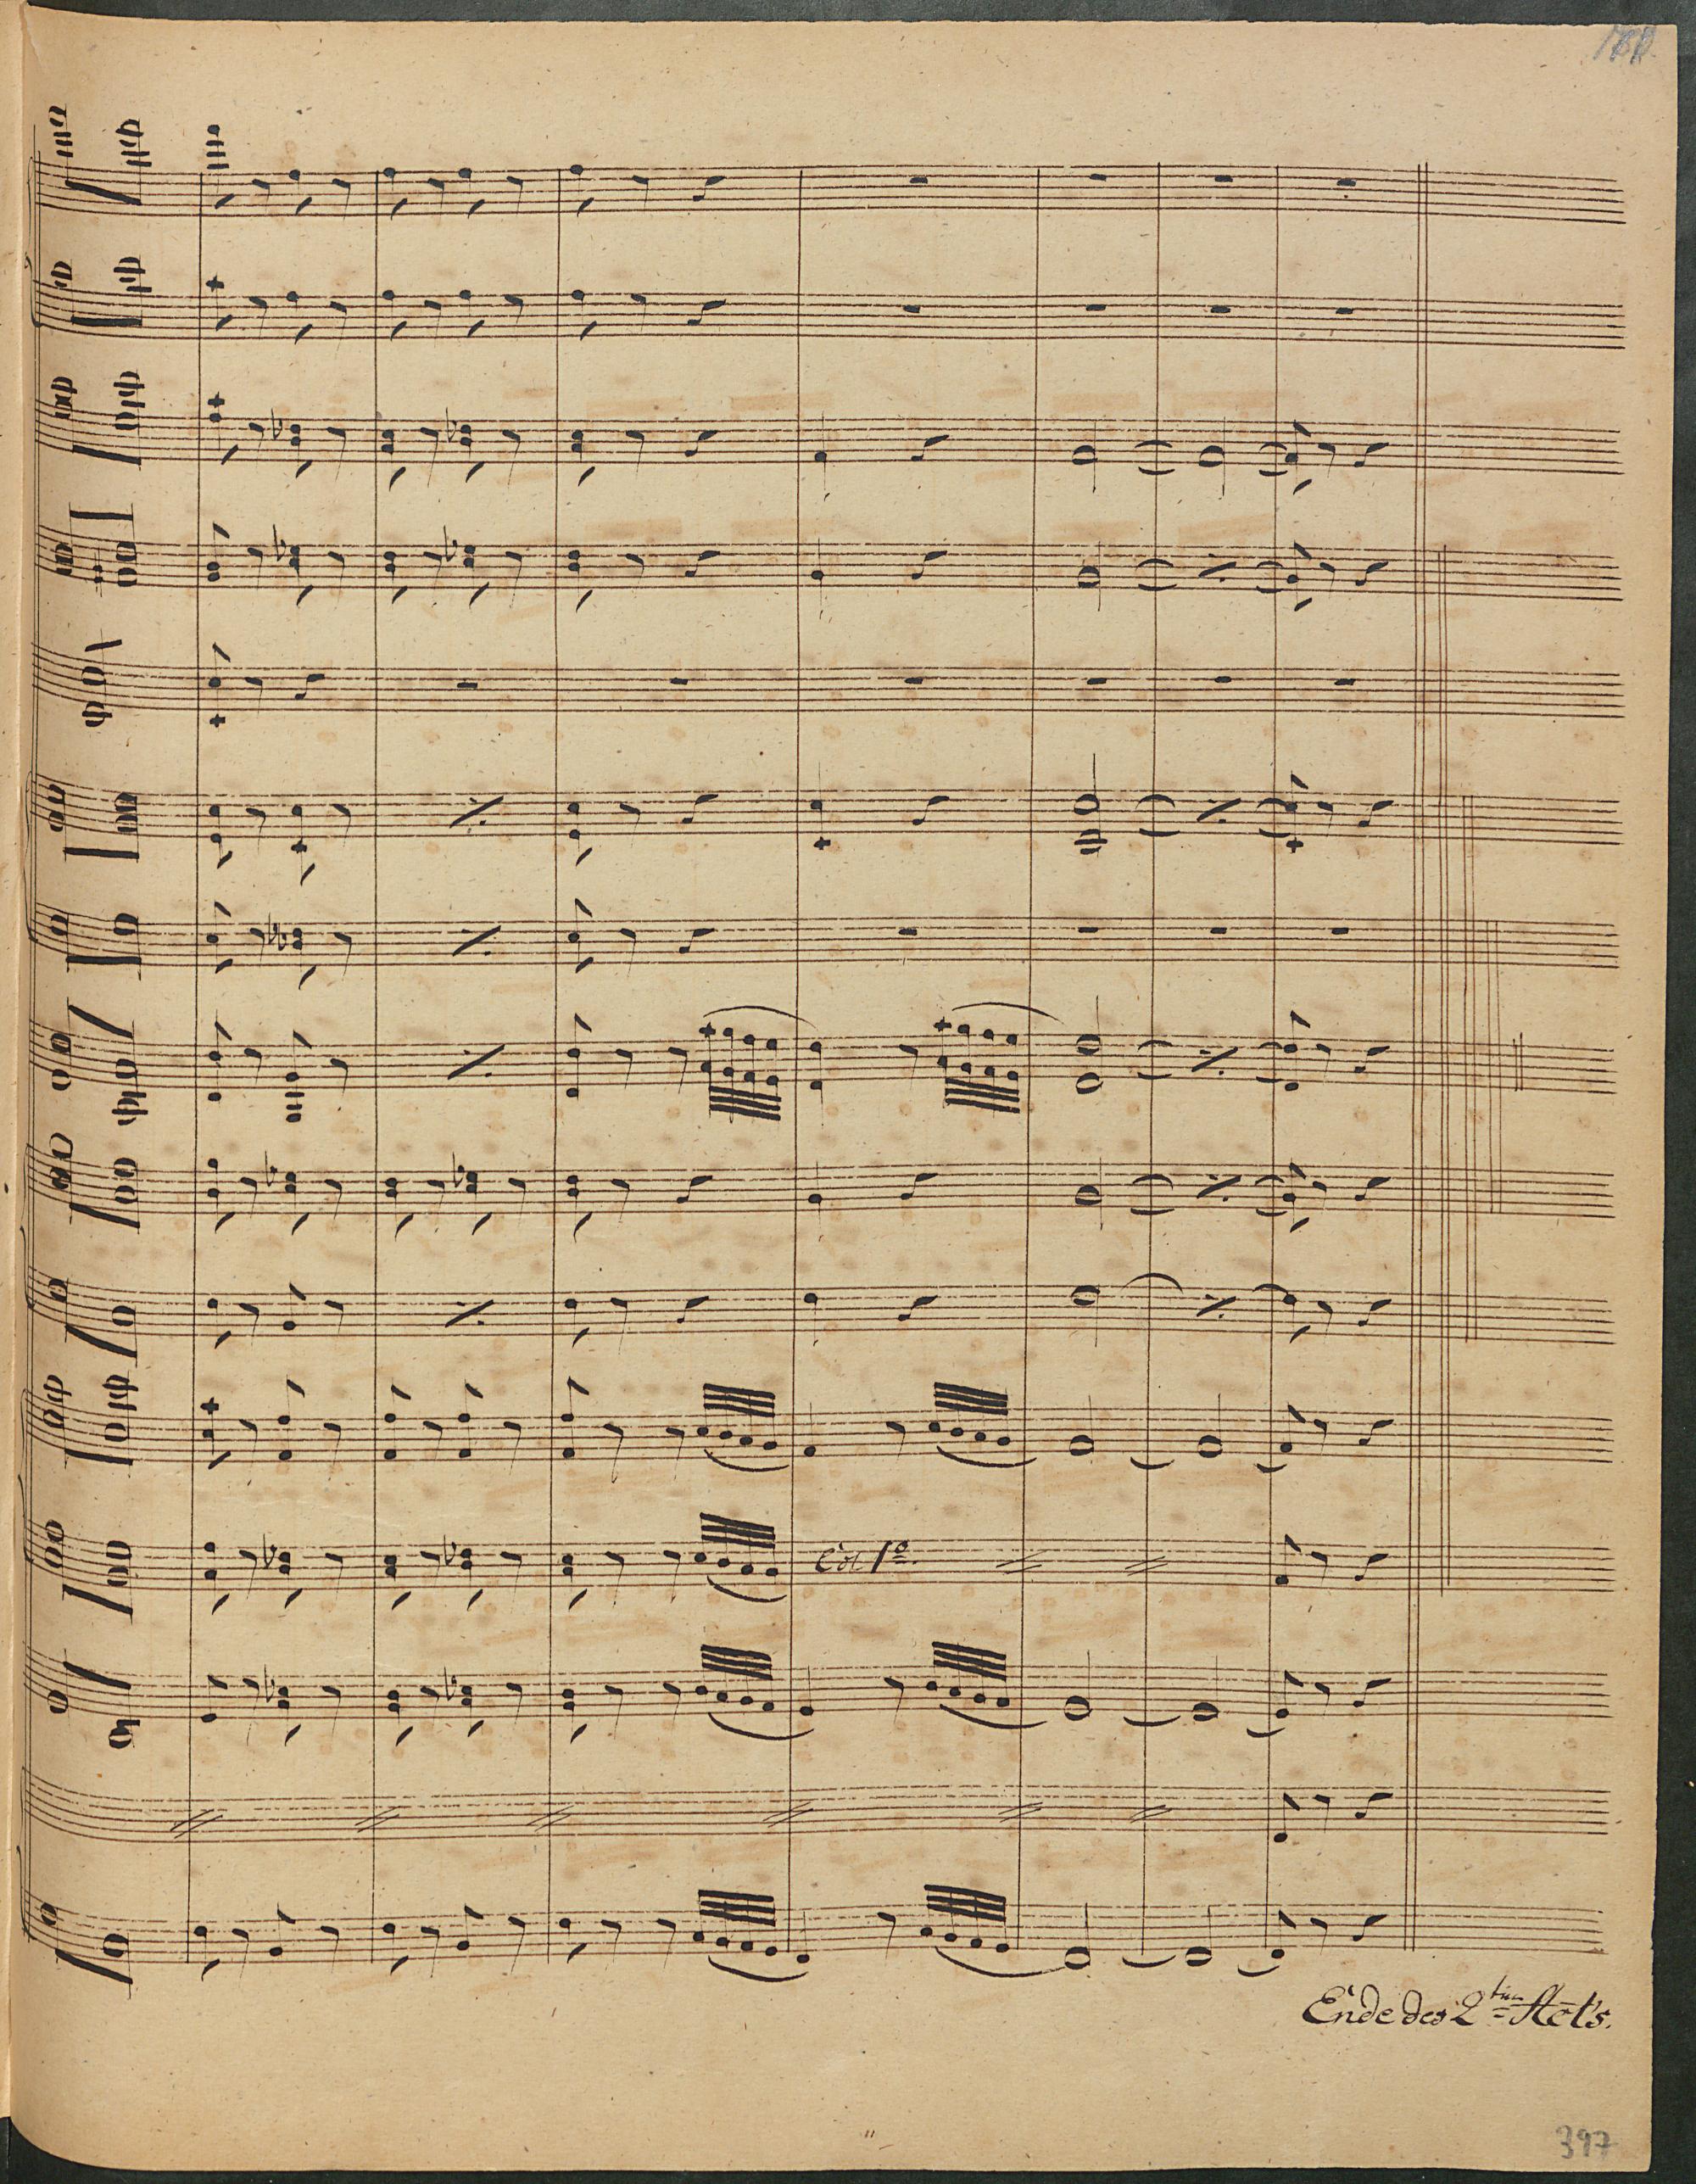 Col 1º.
Ende des 2ten Act's.
397